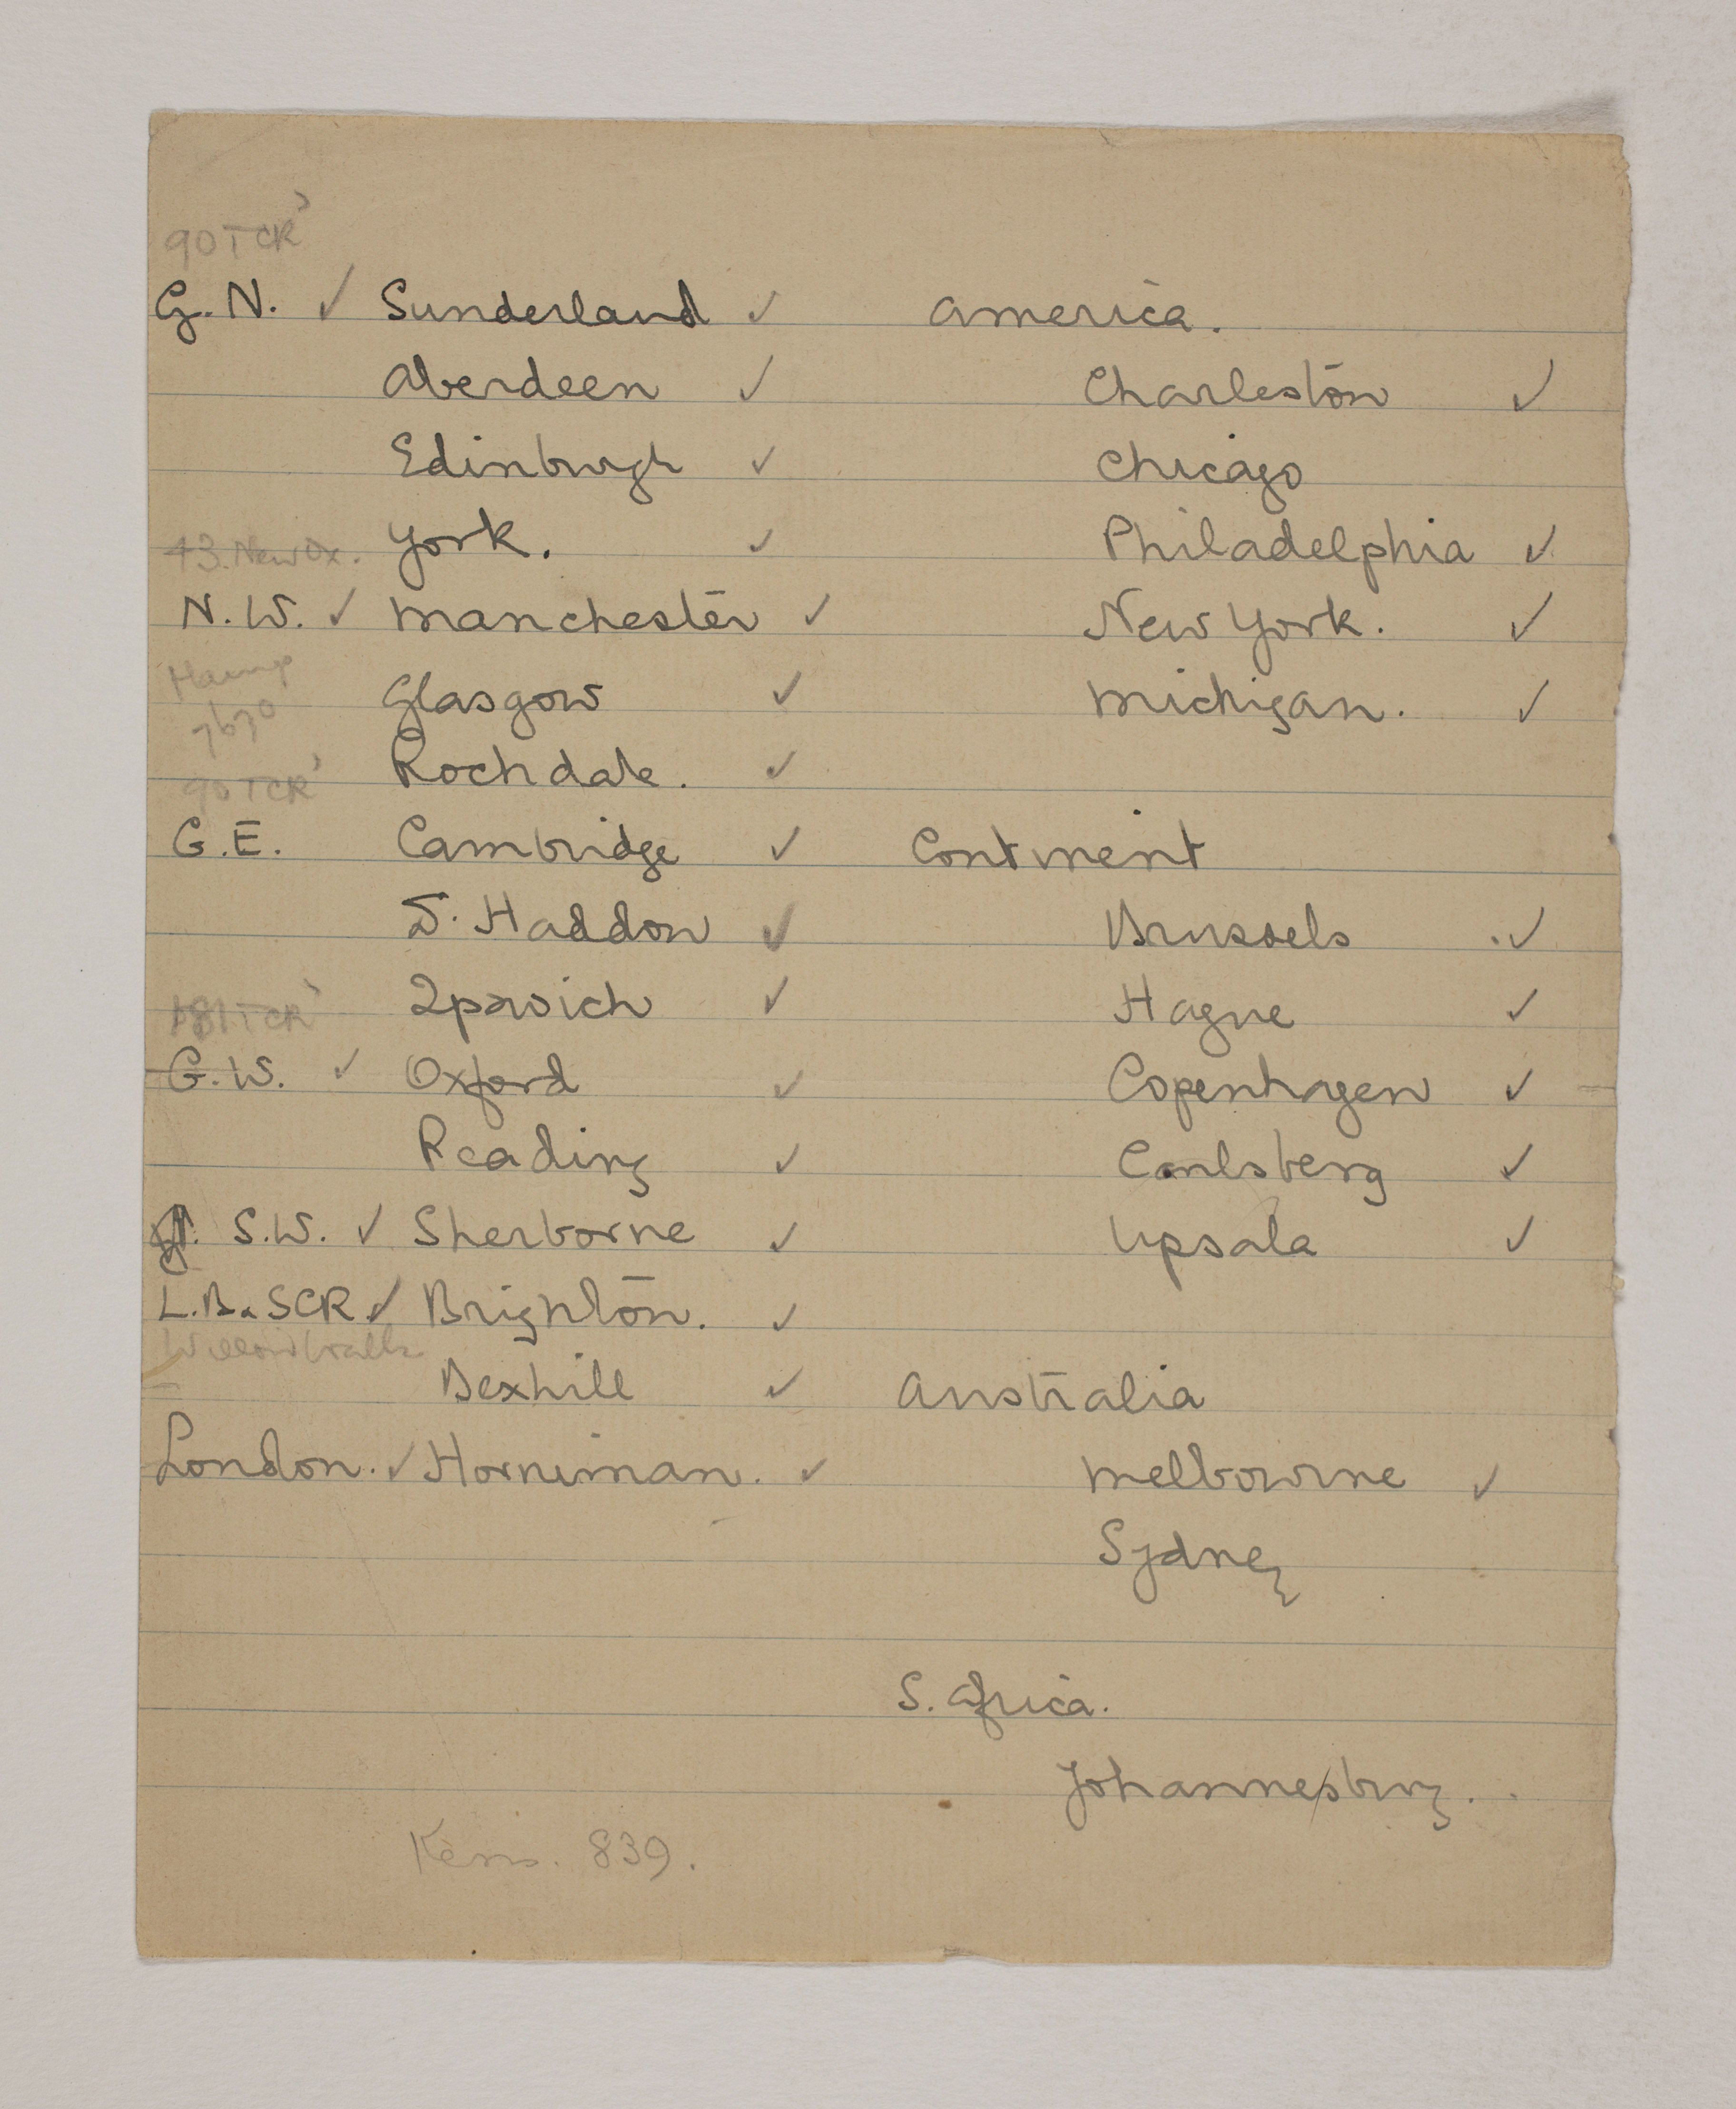 90 TCR
G. N. ✓ Sunderland ✓
Aberdeen ✓
Edinburgh ✓
43. New Ox. York. ✓
N. W. ✓ Manchester ✓
Glasgow ✓
7670
Rochdale. ✓
90 TCR
G. E. Cambridge ✓
D. Haddon ✓
Ipswich ✓
TCR
G. W. ✓ Oxford ✓
Reading ✓
S.W. ✓ Sherborne ✓
L.B. & SCR ✓ Brighton. ✓
Bexhill ✓
London. ✓ Horniman. ✓
Kens. 839.
America.
Charleston ✓
Chicago
Philadelphia ✓
New York. ✓
Michigan. ✓
Continent
Brussels ✓
Hague ✓
Copenhagen ✓
Carlsberg ✓
Upsala ✓
Australia
Melbourne ✓
Sydney
S. Africa.
Johannesburg.